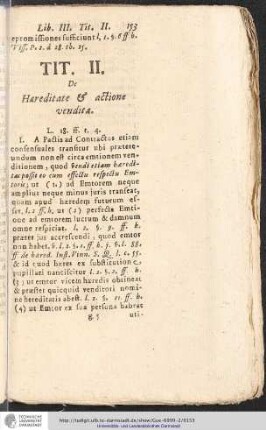 Lib. III. Tit. II. 153
promissiones sufficiunt l. 1. §. 6 ff h.
Viss. P. 2. d 28. th. 15.
TIT. II.
De
Hæreditate & actione
vendita.
L. 18. ff. t. 4.
I. A Pactis ad Contractus etiam
consensuales transitur ubi prætere-
undum non est circa emtionem ven-
ditionem, quod Vendi etiam heredi-
tas possit eo cum effectu respectu Em-
toris; ut (1) ad Emtorem neque
amplius neque minus juris transeat,
quam apud hæredem futurum es-
set, l. 2 ff. h, ut (2) perfecta Emti-
one ad emtorem lucrum & damnum
omne respiciat. l. 2. §. 9. ff. h.
præter jus accrescendi, quod emtor
non habet. §. l. 2. §. 1. ff. h. §. 9. l. 55.
ff. de hæred. Inst. Vinn. S. Q. l. 1. 55.
& id quod hæres ex substitution e.
pupillari nanciscitur l. 2. §. 2. ff. h.
(3) ut emtor vicem hæredis obtineat
& præstet quicquid venditori nomi-
ne hereditatis abest. l. 2. §. 11 ff. h.
(4) ut Emtor ex sua persona habeat
g. 5 uti-
TECHNISCHE
UNIVERSITÄT
DARMSTADT
Universitäts- und Landesbibliothek Darmstadt